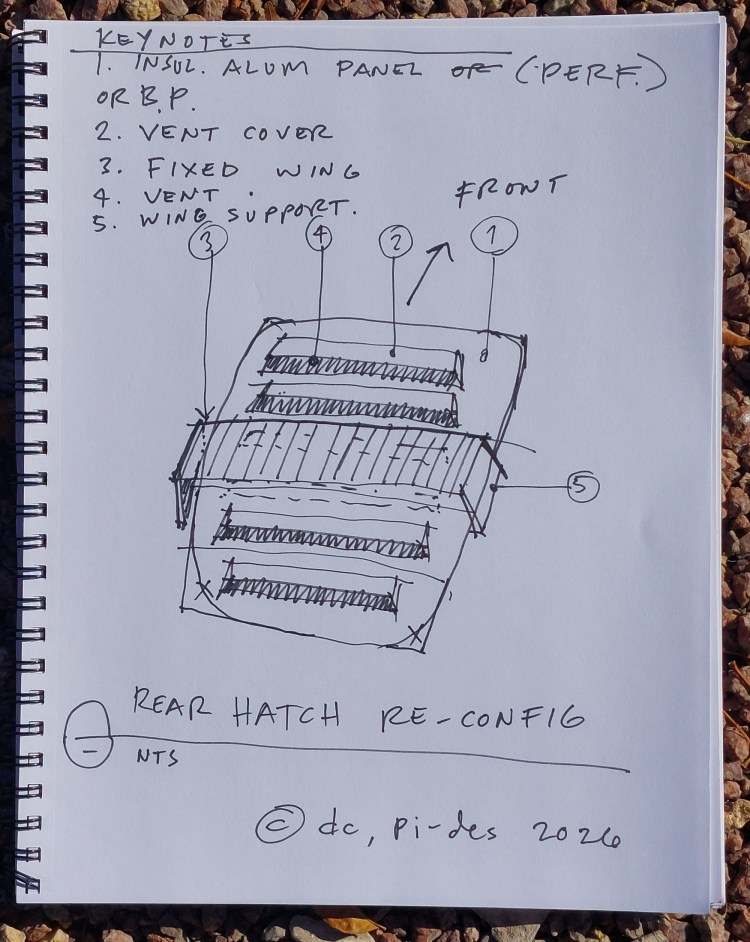 KEYNOTES
1. INSUL. ALUM PANEL OR (PERF.)
OR B.P.
2. VENT COVER
3. FIXED WING
4. VENT.
5. WING SUPPORT.
FRONT
3 4 2 1
5
REAR HATCH RE-CONFIG
-
NTS
© dc, pi-des 2026